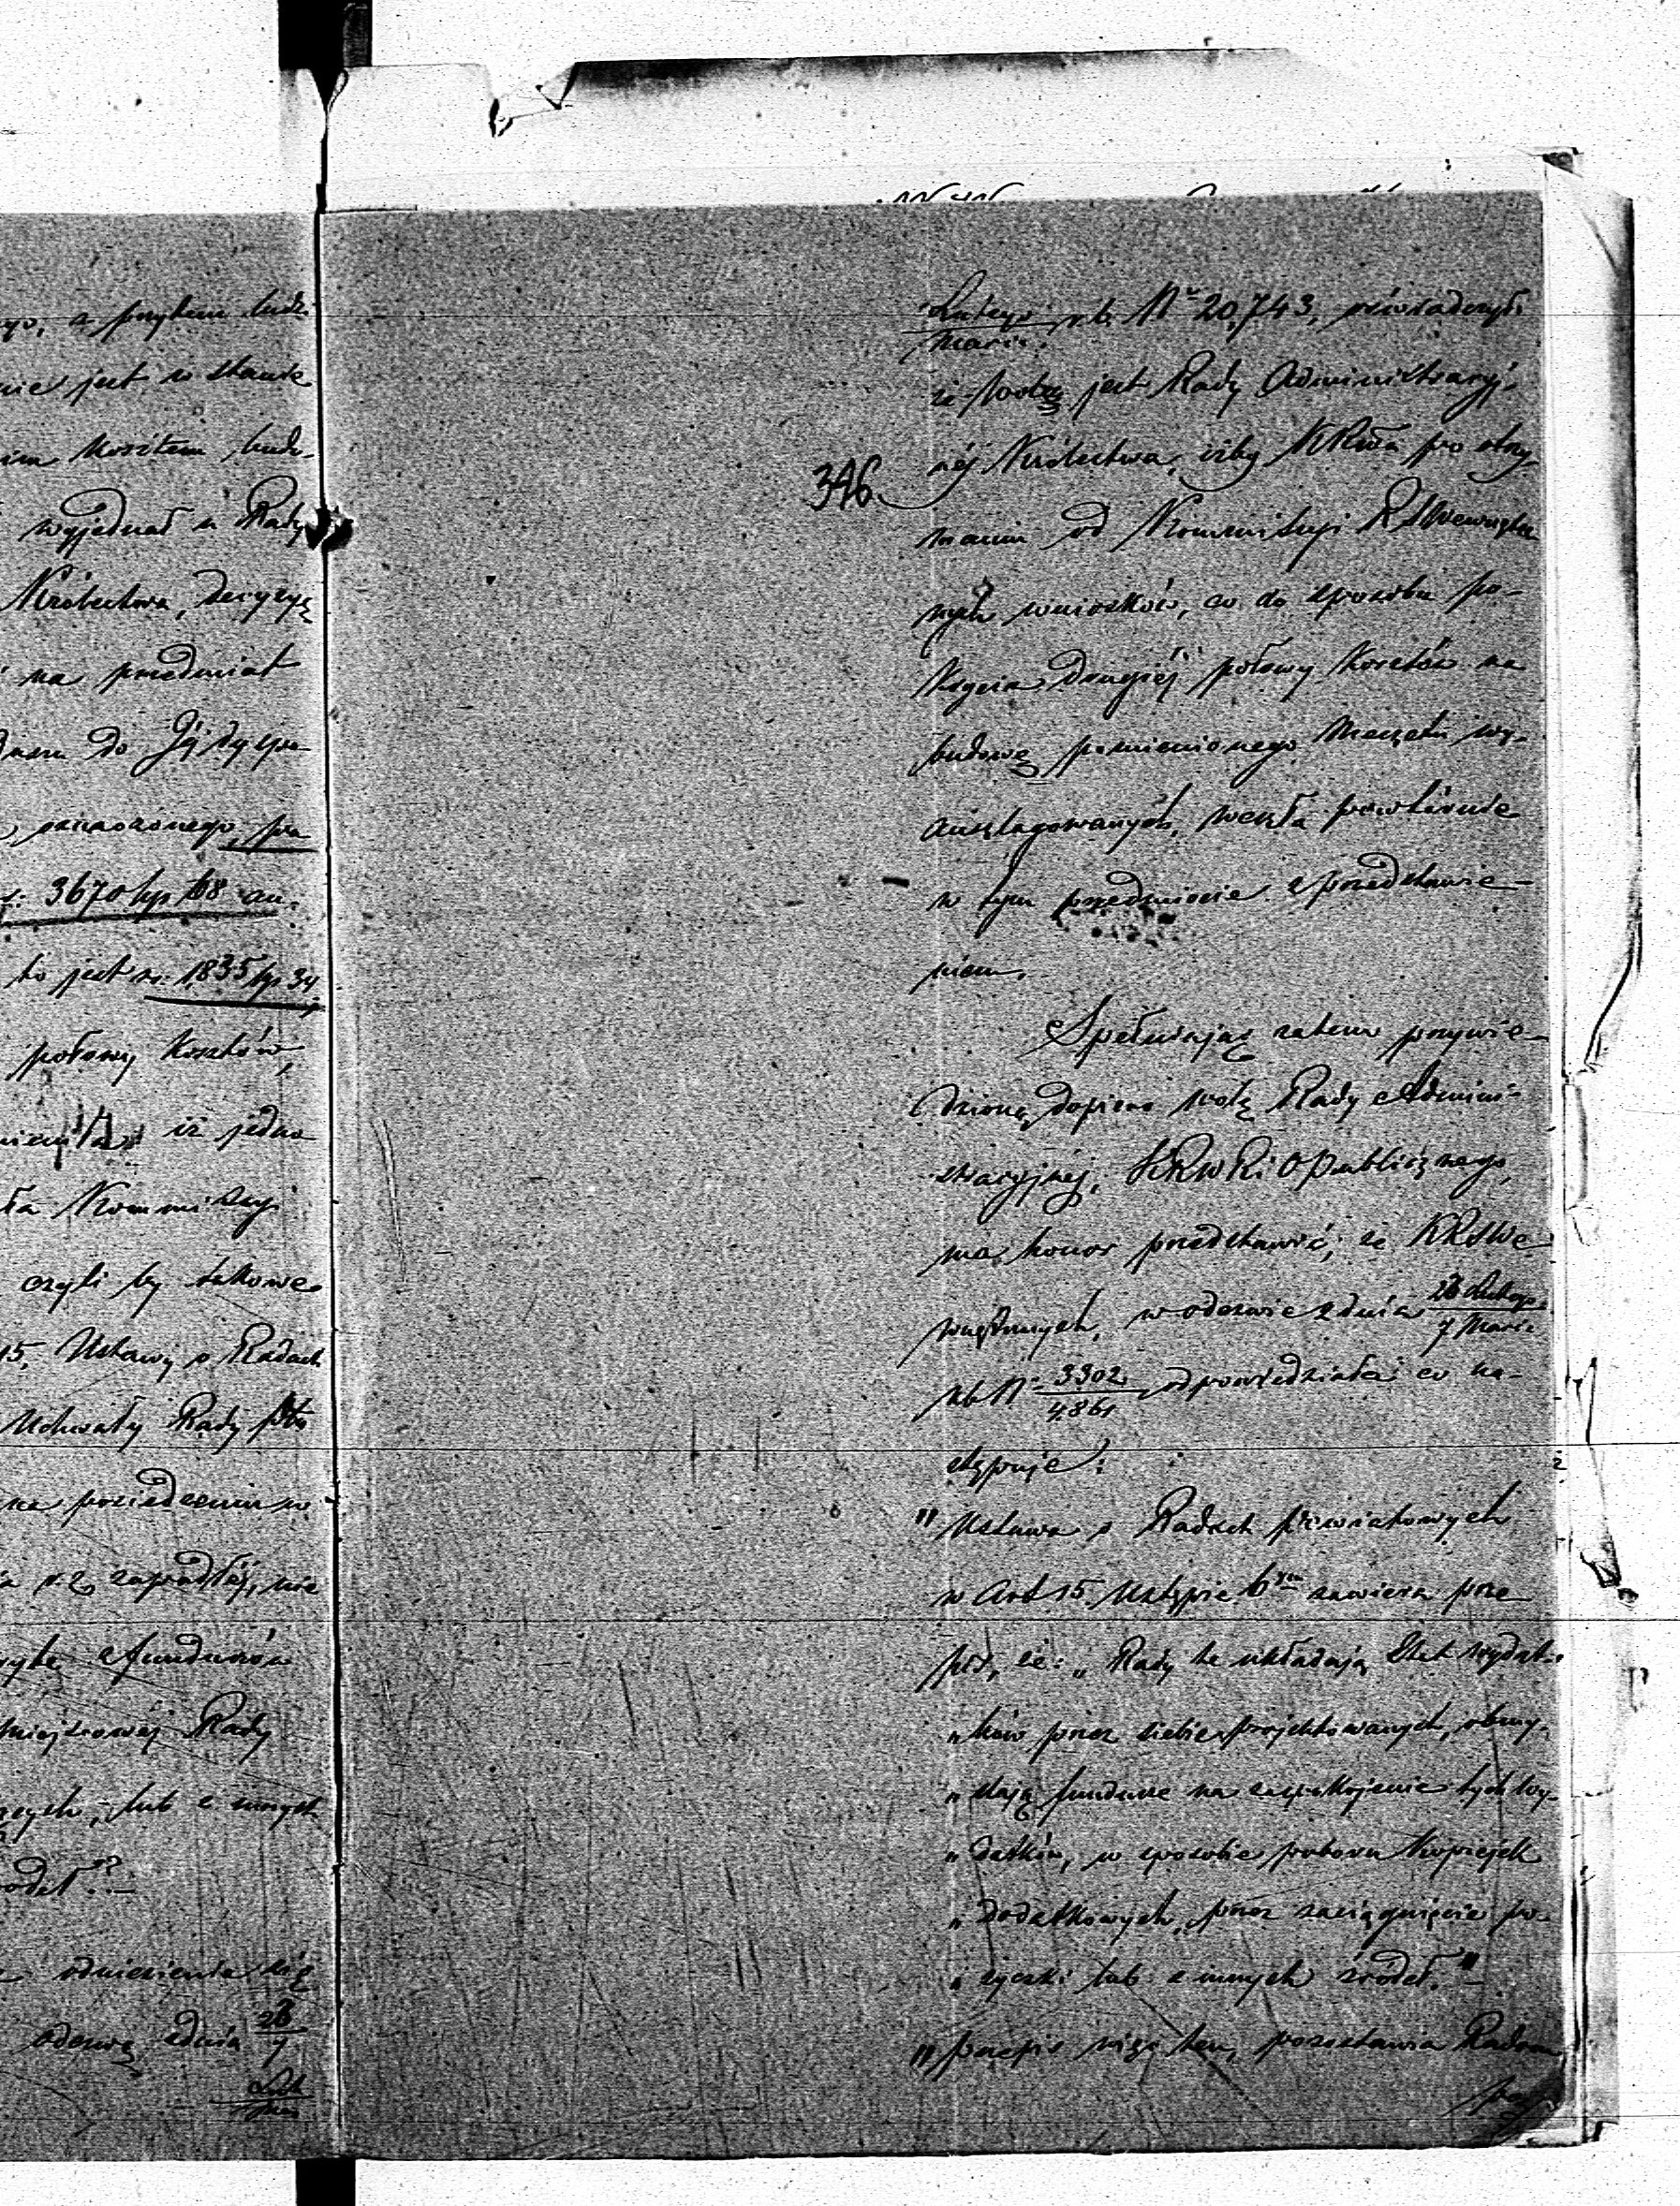 ego, a przytem budo
nie jest w stanie
kosztem budo-
wyjednał u Rady
Królestwa, decyzyą
na przedmiot
do Jéj dyspo
przeznaczonego,
rs: 3670 kp 68 an-
to jest rs: 1,835 kp 34,
połowy kosztów,
iż jedna
ła Kommissyi
czyli by takowe
15, Ustawy o Radach
Uchwały Rady Ptu
na posiedzeniu w
r. z. zapadłéj, nie
funduszów
miejscowéj Rady
lub z innych
źródeł?
odniesienia się
odezwą z dnia 26/7
Lut
Mar
Lutego/Marca r. b. Nr 20,743, oświadczył:
że wolą jest Rady Administracyj-
néj Królestwa, iżby KRwa po otrzy-
346
maniu od Kommissyi RSWewnętrz
nych wniosków, co do sposobu po-
krycia drugiéj połowy kosztów na
budowę pomienionego Meczetu wy-
anszlagowanych, weszła powtórnie
w tym przedmiocie z przedstawie-
niem.
Spełniając zatem przywie-
dzioną dopiero wolę Rady Admini-
stracyjnéj, KRWRiOPublicznego,
ma honor przedstawić, że KRSWe
wnętrznych, w odezwie z dnia 26 Lutego/7 Marca
Nb N. 3302/4861 odpowiedziała co na-
stępuje:
" Ustawa o Radach powiatowych
w Art 15 Ustępie 6ym zawiera prze
pis, że: „Rady te układają Etat wydat-
„ków przez siebie projektowanych, obmy-
„ślają fundusze na zaspokojenie tych wy-
„datków, w sposobie poboru kopiejek
„dodatkowych, przez zaciągnięcie po-
„życzki lub z innych źródeł." –
" Przepis więc ten, pozostawia Radom